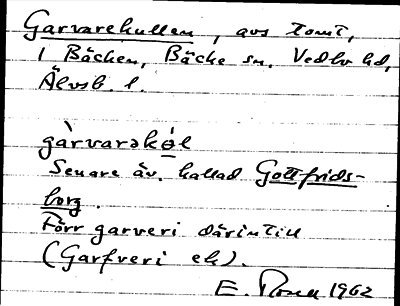 Garvarekullen, avs tomt,
i Bäcken, Bäcke sn. Vedbo hd,
Älvsb. l.
gàrvarəkɵ́l
Senare äv. kallad Gottfrids-
borg.
Förr garveri därintill
(Garfveri ek).
E. 1962